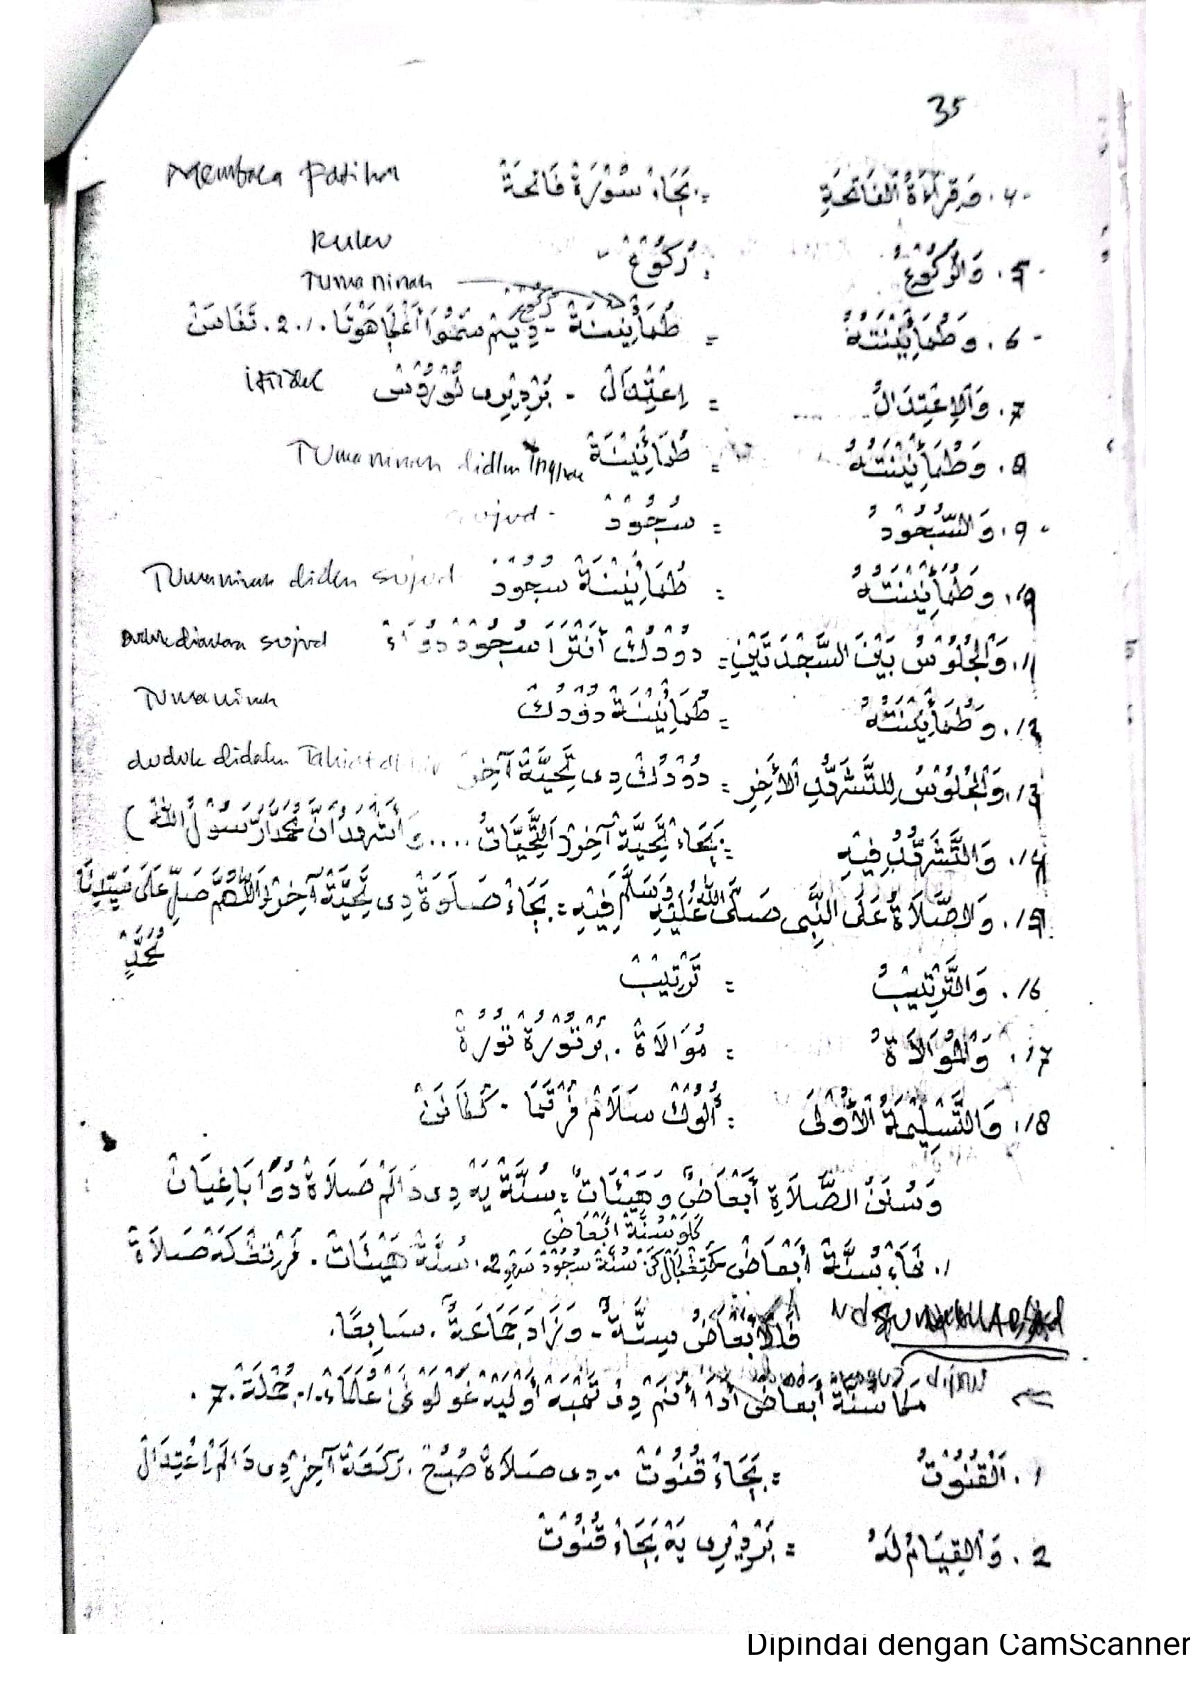 35
4. وَقِرَاءَةُ الْفَاتِحَةِ = بَجَاءْ سُوْرَةْ فَاتِحَةْ Membaca Fatiha
Ruku
5. وَالرُّكُوْعُ = رُكُوْعْ
Tuma ninah
رُكُوْعْ
6. وَطُمَأْنِيْنَتُهُ = طُمَأْنِيْنَةْ - دِيَمْ سَمُوْا أَڠْݢَاهَوْتَا 1. 2. نَفَاسَنْ
7. وَالْإِعْتِدَالُ = اِعْتِدَالْ - بَرْدِيْرِى لُوْرُوْسْ i'tidal
8. وَطُمَأْنِيْنَتُهُ = طُمَأْنِيْنَةْ Tumaninah didlm
9. وَالسُّجُوْدُ = سُجُوْدْ sujud
10. وَطُمَأْنِيْنَتُهُ = طُمَأْنِيْنَةْ سُجُوْدْ Tumaninah didlm sujud
11. وَالْجُلُوْسُ بَيْنَ السَّجْدَتَيْنِ = دُوْدُكْ أَنْتَرَا سُجُوْدْ دُوْاءْ duduk diantara sujud
12. وَطُمَأْنِيْنَتُهُ = طُمَأْنِيْنَةْ دُوْدُكْ Tumaninah
13. وَالْجُلُوْسُ لِلتَّشَهُّدِ الْأَخِرِ = دُوْدُكْ دِى تَحِيَّةْ آخِرْ duduk didalm Tahiat
14. وَالتَّشَهُّدُ فِيْهِ = بَجَاءْ تَحِيَّةْ آخِرْ (اَلتَّحِيَّاتُ .... وَأَشْهَدُ أَنَّ مُحَمَّدًا رَسُوْلُ اللهِ)
15. وَالصَّلَاةُ عَلَى النَّبِى صَلَّى اللهُ عَلَيْهِ وَسَلَّمَ فِيْهِ = بَجَاءْ صَلَوَةْ دِى تَحِيَّةْ آخِرْ اَللّٰهُمَّ صَلِّ عَلَى سَيِّدِنَا
مُحَمَّدٍ
16. وَالتَّرْتِيْبُ = تَرْتِيْبْ
17. وَالْمُوَالَاةُ = مُوَالَاةْ . بَرْتُوْرُةْ تُوْرُةْ
18. وَالتَّسْلِيْمَةُ الْأُوْلَى = أُلُوْكْ سَلَامْ فَرْتَمَا - كَكَانَنْ
وَسُنَنُ الصَّلَاةِ أَبْعَاضٌ وَهَيْئَاتٌ = سُنَّةْ يَهْ دِى دَالَمْ صَلَاةْ دُوْا بَاغِيَانْ
كَلَوْ سُنَّةْ أَبْعَاضْ
1. سُنَّةْ أَبْعَاضْ سُنَّةْ سُجُوْدْ سَهْوِ 2. سُنَّةْ هَيْئَاتْ . صَلَاةْ
فَالْأَبْعَاضُ سِتَّةٌ - وَزَادَ جَمَاعَةٌ . سَابِعًا.
مَكَا سُنَّةْ أَبْعَاضْ أَدَا أَنَمْ دَنْ تَمْبَهْ أُوْلَيْهْ غُوْلُوْغَنْ عُلَمَاءْ 1. جُمْلَةْ. 7.
1. اَلْقُنُوْتُ = بَجَاءْ قُنُوْتْ - دِى صَلَاةْ صُبُحْ . رَكَعَةْ آخِرْ دِى دَالَمْ اِعْتِدَالْ
2. وَالْقِيَامُ لَهُ = بَرْدِيْرِى يَهْ بَجَاءْ قُنُوْتْ
Dipindai dengan CamScanner